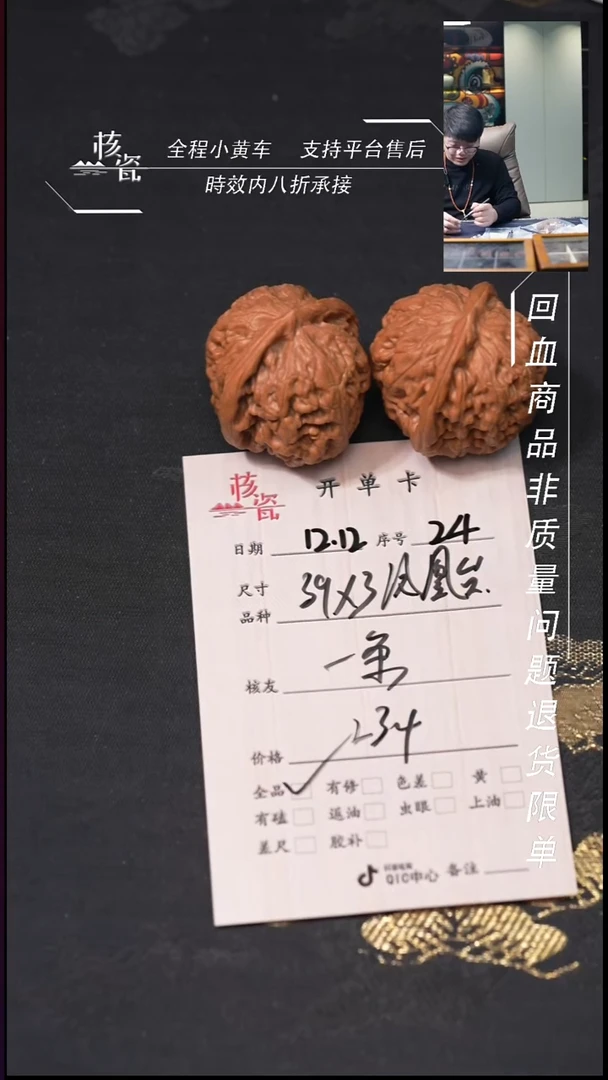 核瓷
全程小黄车 支持平台售后
時效内八折承接
回血商品非质量问题退货限单
核瓷 开单卡
日期 12.12 序号 24
尺寸 39X3 凤凰台
品种
核友 一条
价格 234
全品 有修 色差 黄
有磕 返油 虫眼 上油
差尺 胶补
QIC中心 备注